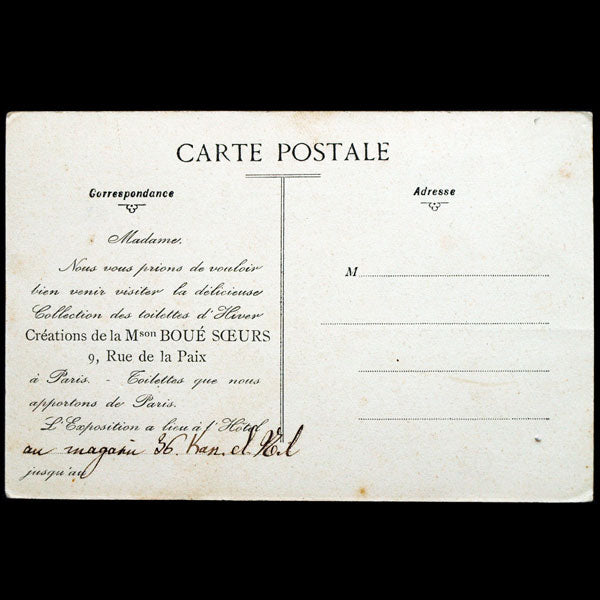 CARTE POSTALE
Correspondance
Adresse
Madame.
Nous vous prions de vouloir
bien venir visiter la délicieuse
Collection des toilettes d'Hiver
Créations de la Mson BOUÉ SŒURS
9, Rue de la Paix
à Paris. - Toilettes que nous
apportons de Paris.
L'Exposition a lieu à l'Hôtel
au magasin 36. Kasr. el. Nil
jusqu'au
M